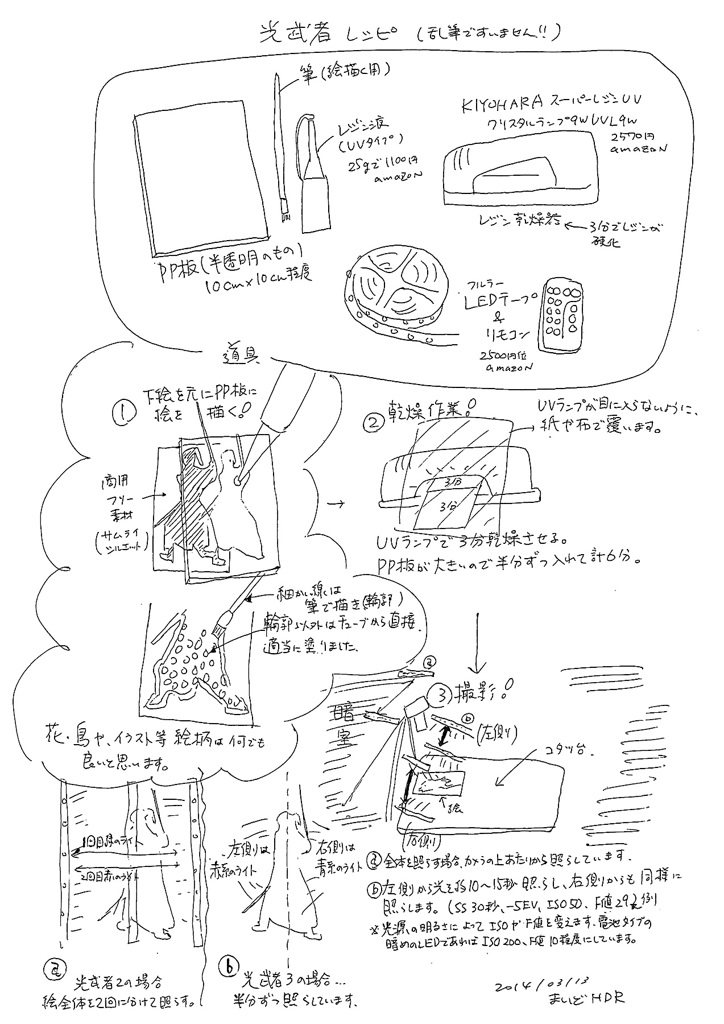 光武者 レシピ (乱筆ですいません!!)
筆(絵描く用)
レジン液
(UVタイプ)
25gで1100円
amazon
KIYOHARA スーパーレジンUV
クリスタルランプ9W UVL9W
2570円
amazon
レジン乾燥器 ← 3分でレジンが
硬化
PP板(半透明のもの)
10cm×10cm程度
フルカラー
LEDテープ
&
リモコン
2500円位
amazon
道具
① 下絵を元にPP板に
絵を描く!
商用
フリー
素材
(サムライ
シルエット)
細かい線は
筆で描き(輪郭)
輪郭以外はチューブから直接
適当に塗りました。
花・鳥や、イラスト等 絵柄は何でも
良いと思います。
② 乾燥作業!
UVランプが目に入らないように、
紙や布で覆います。
3分
3分
UVランプで3分乾燥させる。
PP板が大きいので半分ずつ入れて計6分。
③ 撮影!
暗室
ⓐ
ⓑ
(左側)
コタツ台
絵
(右側)
ⓐ 全体を照らす場合、カメラの上あたりから照らしています。
ⓑ 左側から光を約10〜15秒照らし、右側からも同様に
照らします。(SS30秒、-5EV、ISO50、F値29)例
※光源の明るさによってISOやF値を変えます。電池タイプの
暗めのLEDであればISO200、F値10程度にしています。
1回目緑のライト
2回目赤のライト
左側は
赤系のライト
右側は
青系のライト
ⓐ 光武者2の場合
絵全体を2回に分けて照らす。
ⓑ 光武者3の場合…
半分ずつ照らしています。
2014/03/13
まいど HDR